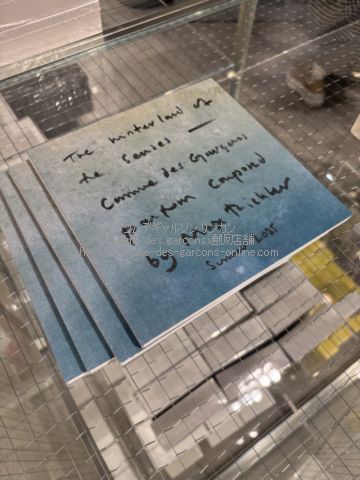 The hinterland of
the senses —
Comme des Garçons
Parfum Composed
by Max Richter
コム デ ギャルソン リンカン
(comme-des-garcons)通販店舗
https://www.comme-des-garcons-online.com